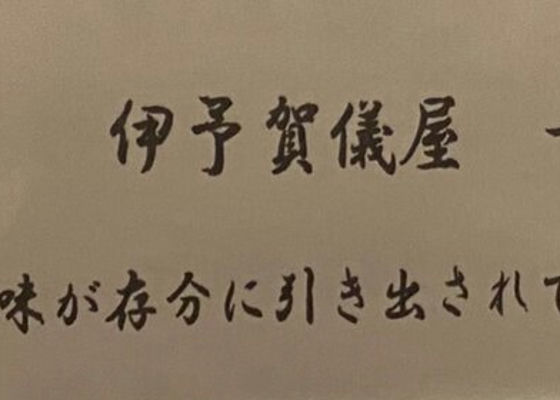 伊予賀儀屋
味が存分に引き出されて